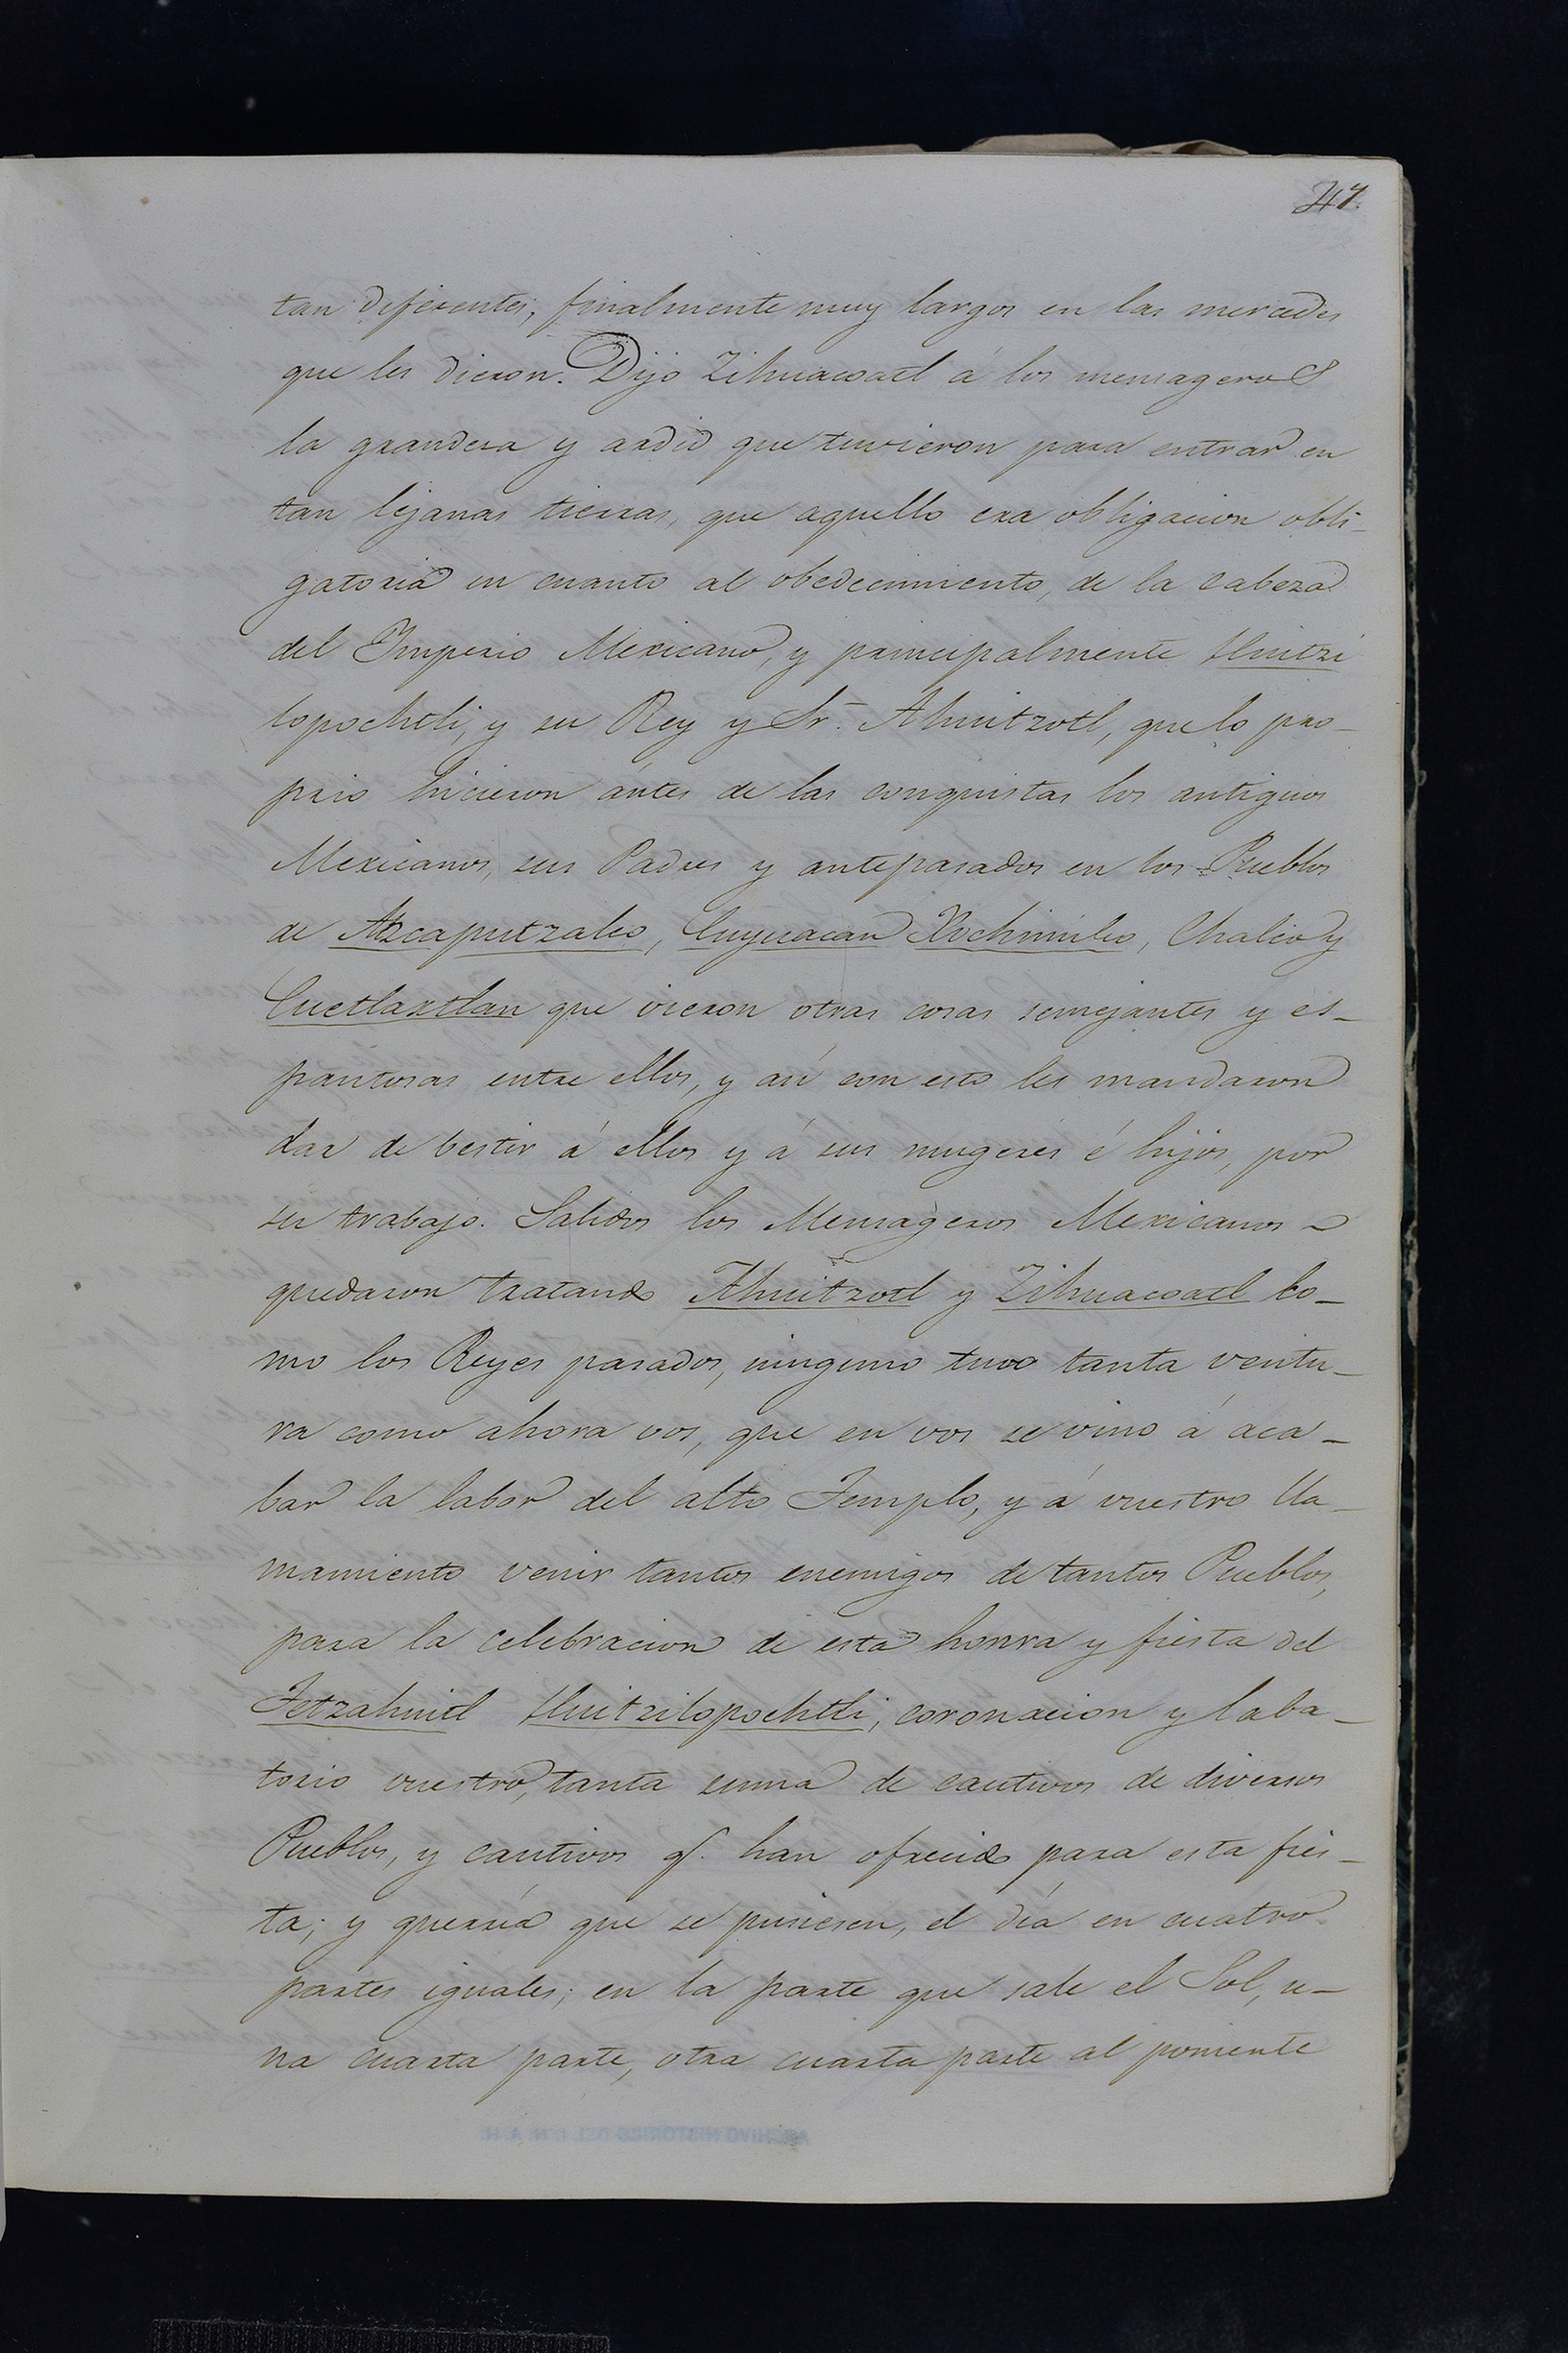 247.
tan diferentes; finalmente muy largos en las mercedes
que les dieron. Dijo Zihuacoatl á los mensageros
la grandeza y ardid que tuvieron para entrar en
tan lejanas tierras, que aquello era obligacion obli-
gatoria en cuanto al obedecimiento, de la cabeza
del Imperio Mexicano, y principalmente Huitzi
lopochtli, y su Rey y Sr. Ahuitzotl, que lo pro-
prio hicieron ántes de las conquistas los antiguos
Mexicanos, sus Padres y antepasados en los Pueblos
de Atzcaputzalco, Cuyuacan Xochimilco, Chalco y
Cuetlaxtlan que vieron otras cosas semejantes y es-
pantosas entre ellos, y así con esto les mandaron
dar de bestir á ellos y á sus mugeres é hijos, por
su trabajo. Salidos los Mensageros Mexicanos
quedaron tratando Ahuitzotl y Zihuacoatl co-
mo los Reyes pasados, ninguno tuvo tanta ventu-
ra como ahora vos, que en vos se vino á aca-
bar la labor del alto Templo, y á vuestro lla-
mamiento venir tantos enemigos de tantos Pueblos,
para la celebracion de esta honra y fiesta del
Tetzahuitl Huitzilopochtli, coronacion y laba-
torio vuestro, tanta suma de cautivos de diversos
Pueblos, y cautivos q. han ofrecido para esta fies-
ta; y querria que se pusiesen, el día en cuatro
partes iguales; en la parte que sale el Sol, u-
na cuarta parte, otra cuarta parte al poniente